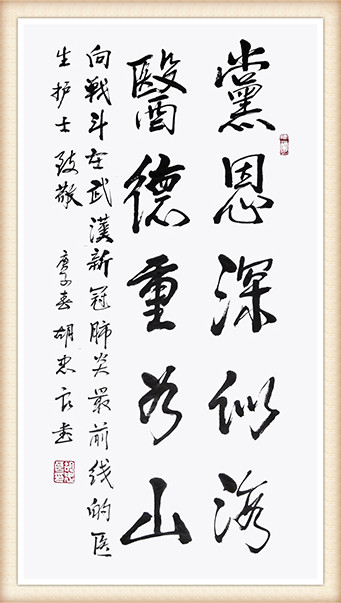 黨恩深似海
醫德重如山
向戰斗在武漢新冠肺炎最前线的医
生护士致敬 庚子春 胡忠书